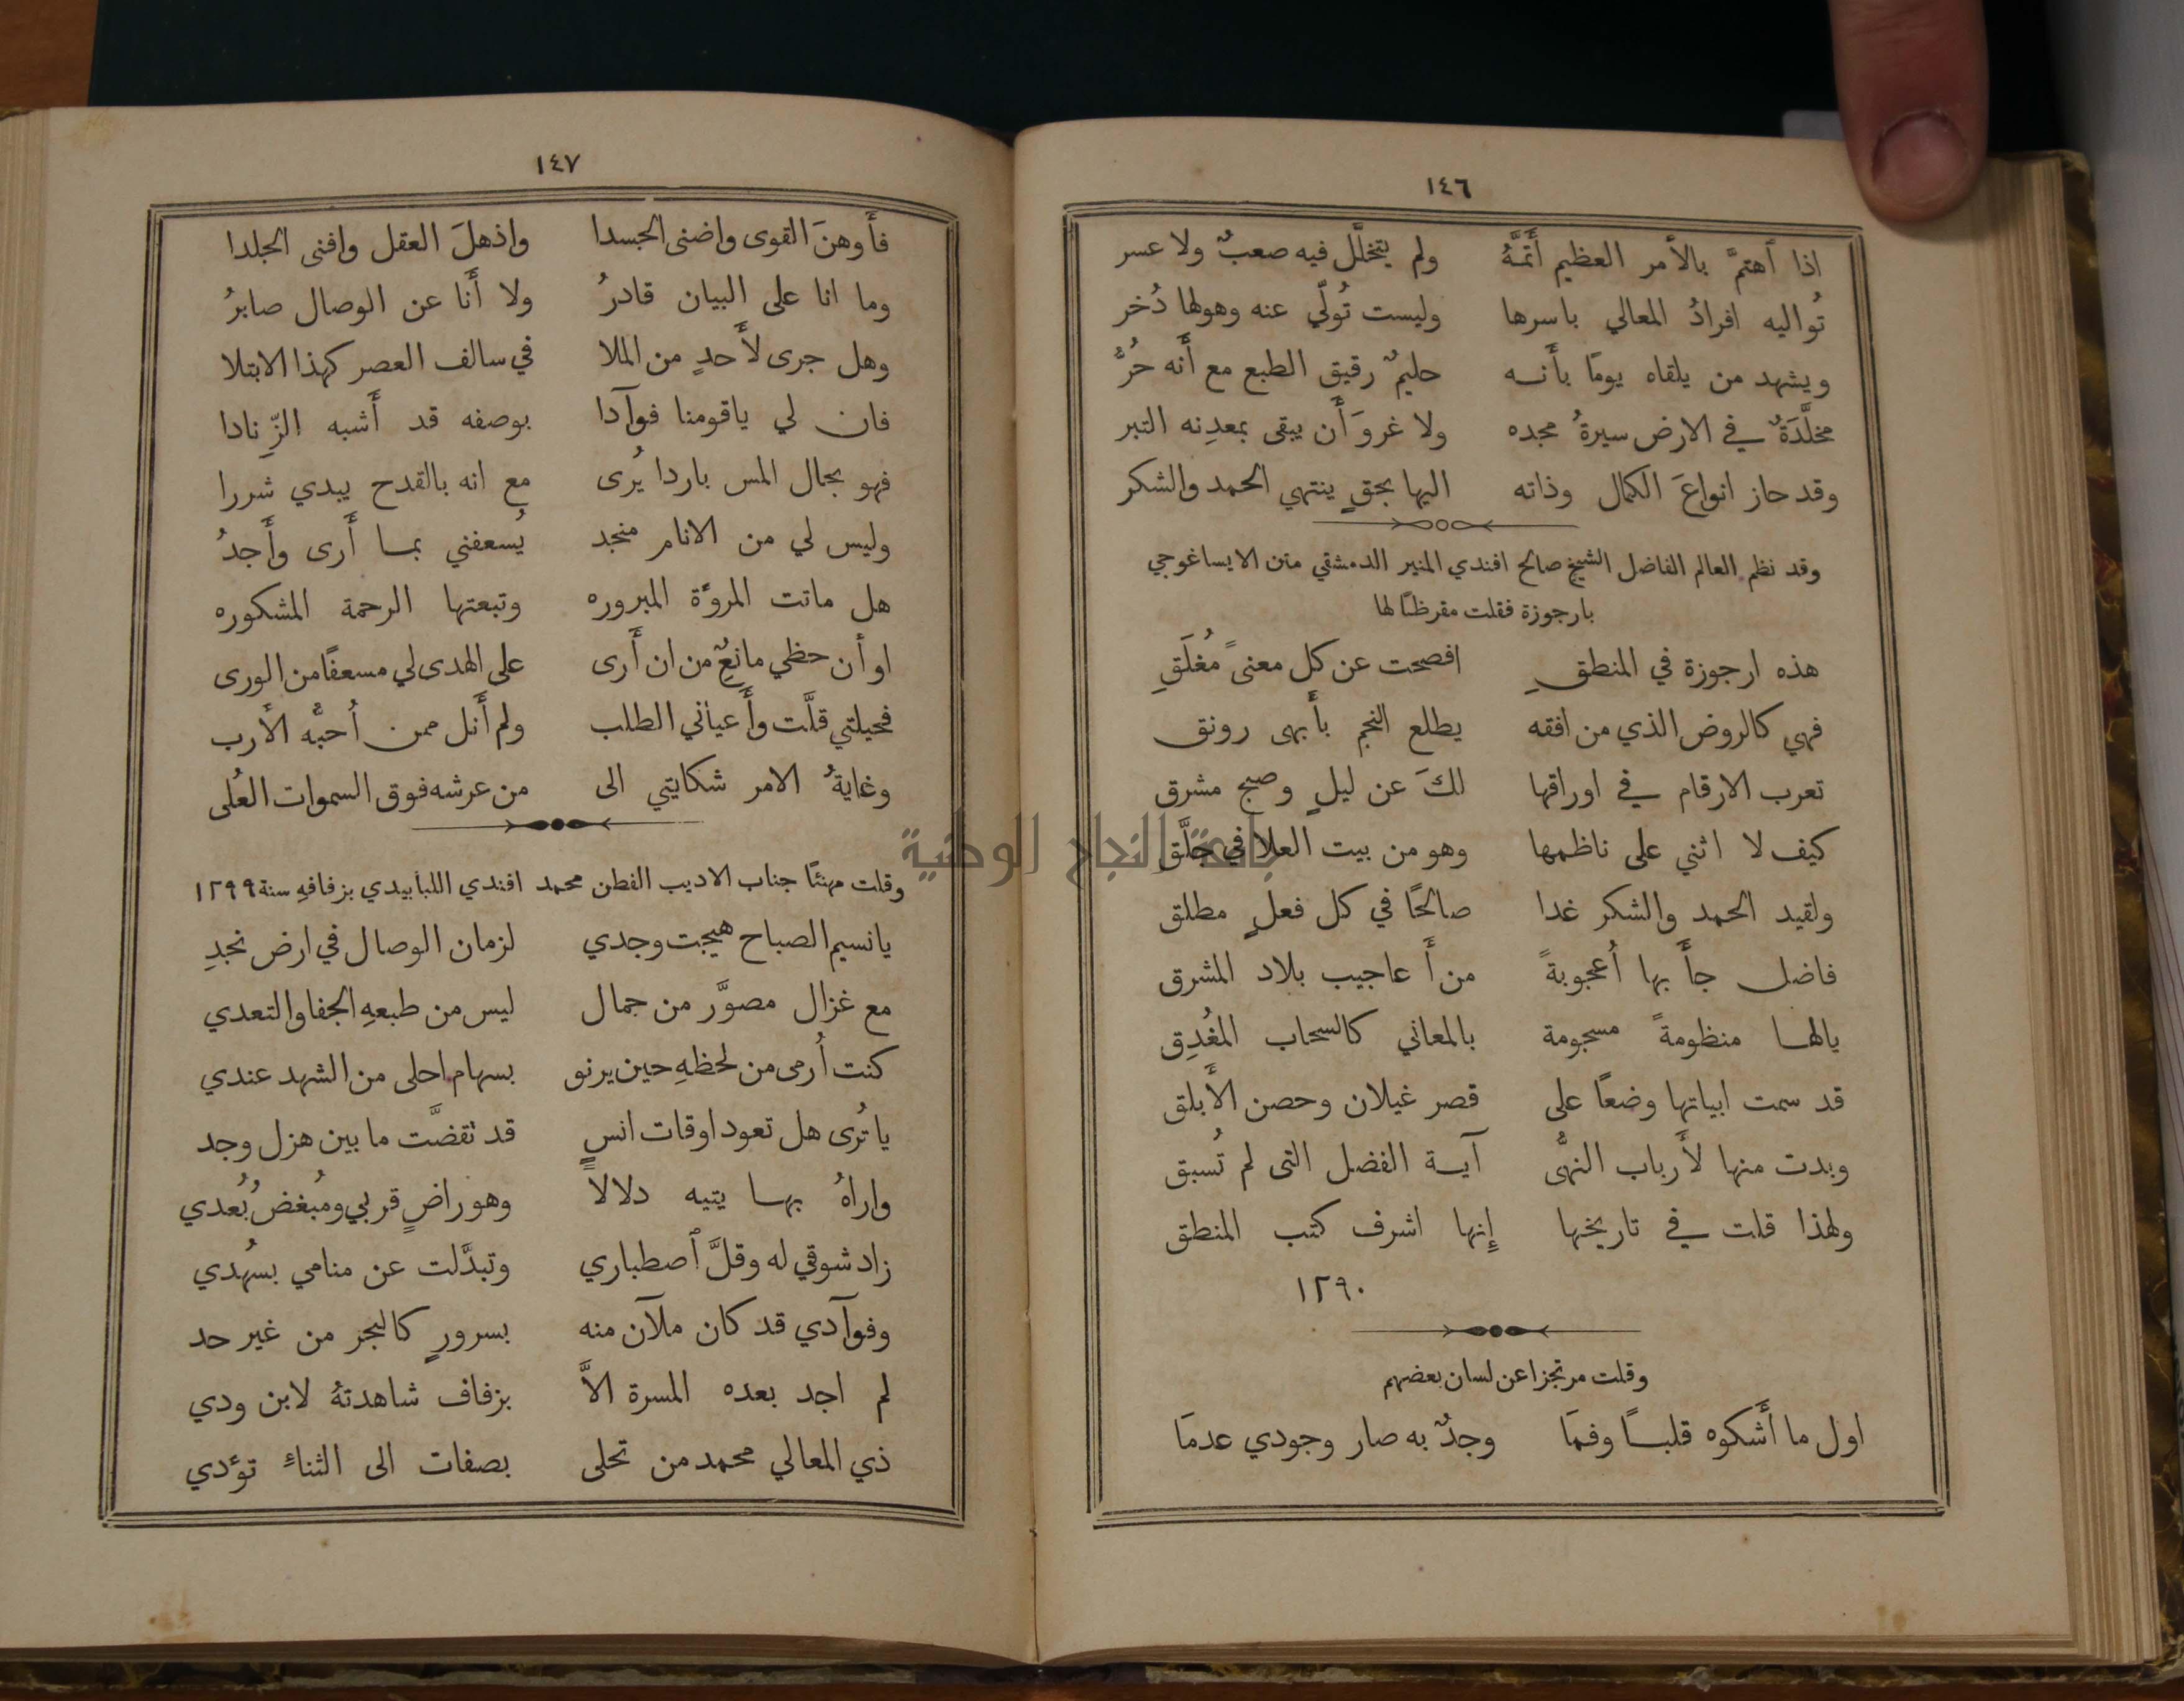 ١٤٦
اذا ٱهتمَّ بالأمر العظيم أَتمَّهُ ولم يتخلَّل فيه صعبٌ ولا عسر
تُواليه افرادُ المعالي باسرها وليست تُولّي عنه وهولها ذُخر
ويشهد من يلقاه يومًا بأَنــه حليمٌ رقيق الطبع مع أَنه حُرُّ
مخلَّدَةٌ في الارض سيرةُ مجده ولا غروَ أَن يبقى بمعدِنه التبر
وقد حاز انواعَ الكمال وذاته اليها بحقٍ ينتهي الحمد والشكر
وقد نظم العالم الفاضل الشيخ صالح افندي المنير الدمشقي متن الايساغوجي
بارجوزة فقلت مقرظًا لها
هذه ارجوزة في المنطقِ افصحت عن كل معنىً مُغلَقِ
فهي كالروض الذي من افقه يطلع النجم بأَبهى رونق
تعرب الارقام في اوراقها لكَ عن ليلٍ وصبح مشرق
كيف لا اثني على ناظمها وهو من بيت العلا في جلَّق
ولقيد الحمد والشكر غدا صالحًا في كل فعلٍ مطلق
فاضل جأَ بها أُعجوبةً من أَعاجيب بلاد المشرق
يالها منظومةً مسجومة بالمعاني كالسحاب المغُدِق
قد سمت ابياتها وضعًا على قصر غيلان وحصن الأَبلق
وبدت منها لأَرباب النهَّى آيـة الفضل التى لم تُسبق
ولهذا قلت في تاريخها إِنها اشرف كتب المنطق
١٢٩٠
وقلت مرتجزا عن لسان بعضهم
اول ما أَشكوه قلبـًا وفمَا وجدٌ به صار وجودي عدمَا
١٤٧
فأَوهنَ القوى واضنى الجسدا واذهلَ العقل وافنى الجلدا
وما انا على البيان قادرُ ولا أَنا عن الوصال صابرُ
وهل جرى لأَحدٍ من الملا في سالف العصر كهذا الابتلا
فان لي ياقومنا فوآدا بوصفه قد أَشبه الزِّنادا
فهو بحمال المس باردا يُرى مع انه بالقدح يبدي شررا
وليس لي من الانام منجد يُسعفني بمـا أَرى وأَجدُ
هل ماتت المروءة المبروره وتبعتها الرحمة المشكوره
او أن حظي مانعٌ من ان أَرى على الهدى لي مسعفًا من الورى
فحيلتي قلَّت وأَعياني الطلب ولم أَنل ممن أُحبُّه الأرب
وغايةُ الامر شكايتي الى من عرشه فوق السموات العُلى
وقلت مهنئًا جناب الاديب الفطن محمد افندي اللبابيدي بزفافهِ سنة ١٢٩٩
يا نسيم الصباح هيجت وجدي لزمان الوصال في ارض نجدِ
مع غزال مصوَّر من جمال ليس من طبعهِ الجفا والتعدي
كنت أُرمى من لحظهِ حين يرنو بسهام احلى من الشهد عندي
يا تُرى هل تعود اوقات انسٍ قد تقضَّت ما بين هزل وجد
واراهُ بهـا يتيه دلالاً وهو راضٍ قربي ومُبغضٌ بُعدي
زاد شوقي له وقلَّ ٱصطباري وتبدَّلت عن منامي بسُهدي
وفوآدي قد كان ملآن منه بسرورٍ كالبحر من غير حد
لم اجد بعده المسرة الاَّ بزفاف شاهدتهُ لابن ودي
ذي المعالي محمد من تحلى بصفات الى الثناءِ تؤدي
جامعة النجاح الوطنية